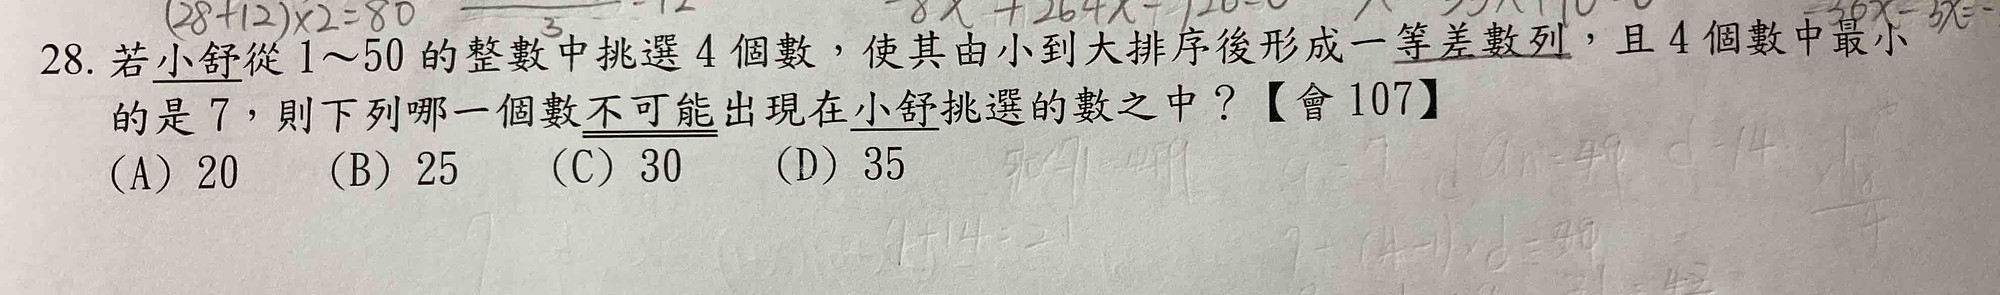 (28+12)×2=80
3
-8x+264x-120=0
28. 若小舒從 1～50 的整數中挑選 4 個數，使其由小到大排序後形成一等差數列，且 4 個數中最小
的是 7，則下列哪一個數不可能出現在小舒挑選的數之中？【會 107】
（A）20 （B）25 （C）30 （D）35